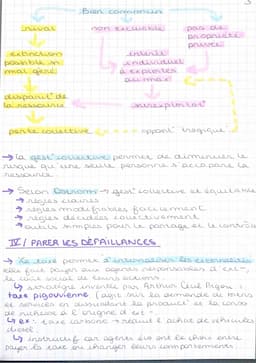 Bien commun
rival
non excluable
pas de propriété privée
extinction possible si mal géré
intérêt individuel à exploiter au max
disparit° de la ressource
surexploitat°
perte collective
opport tragique
→ la gest° collective permet de diminuer le
risque qu'une seule personne s'accapare la
ressource
→ Selon Ostrom → gest° collective et équitable
→ règles claires
→ règles modifiables facilement
→ règles décidées collectivement
→ outils simples pour le partage et le contrôle
IV / PARER LES DÉFAILLANCES
→ La taxe permet d'internaliser les externalités
elle fait payer aux agents responsables d'ext-,
le coût social de leurs actions
↳ stratégie inventée par Arthur Cecil Pigou :
taxe pigouvienne (agis° sur la demande de biens
et services en augmentant le produit et la
de richesse à l'origine d'ext-
↳ ex : taxe carbone → réduit l'achat de véhicules
diesel.
↳ instructif car agents éco ont le choix entre
payer la taxe ou changer leurs comportements.